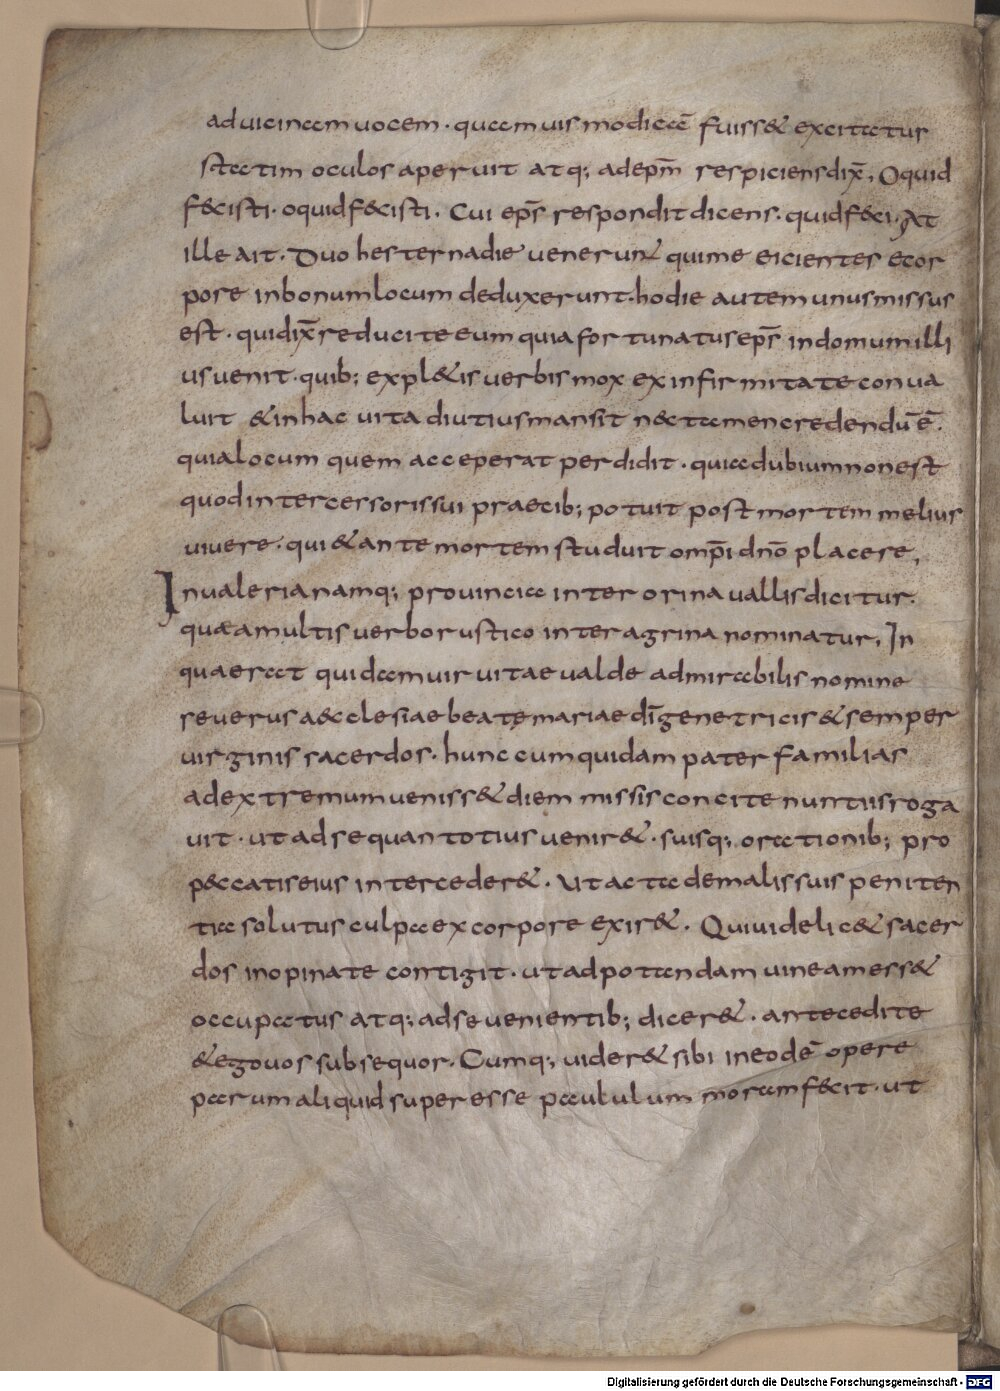 ad uicinam uocem · quamuis modicā fuiss& excitatur
statim oculos aperuit atq; ad ep̄m respiciens dix̄; O quid
f&cisti · o quid f&cisti · Cui ep̄s respondit dicens · quid f&ci · At
ille ait · Duo hesterna die uenerunt qui me eicientes e cor
pore in bonum locum deduxerunt · hodie autem unus missus
est · qui dix̄ reducite eum quia fortunatus ep̄s in domum illi
us uenit · quib; expl&is uerbis mox ex infirmitate conua
luit & in hac uita diutius mansit nec tamen credendū ē ·
quia locum quem acceperat perdidit · quia dubium non est
quod intercessoris sui praecib; potuit post mortem melius
uiuere · qui & ante mortem studuit omp̄i dn̄o placere;
In ualeria namq; prouincia interorina uallis dicitur ·
quae a multis uerbo rustico interagrina nominatur; In
qua erat quidam uir uitae ualde admirabilis nomine
seuerus aecclesiae beatę mariae dī genetricis & semper
uirginis sacerdos · hunc cum quidam pater familias
ad extremum ueniss& diem missis concite nuntiis roga
uit · ut ad se quantotius uenir& · suisq; orationib; pro
p&ccatis eius interceder& · Ut acta de malis suis peniten
tia solutus culpa ex corpore exir& · Qui uidelic& sacer
dos inopinate contigit · ut ad potandam uineam ess&
occupatus atq; ad se uenientib; dicer& · antecedite
& ego uos subsequor · Cumq; uider& sibi in eodē opere
parum aliquid superesse paululum moram f&cit · ut
Digitalisierung gefördert durch die Deutsche Forschungsgemeinschaft - DFG